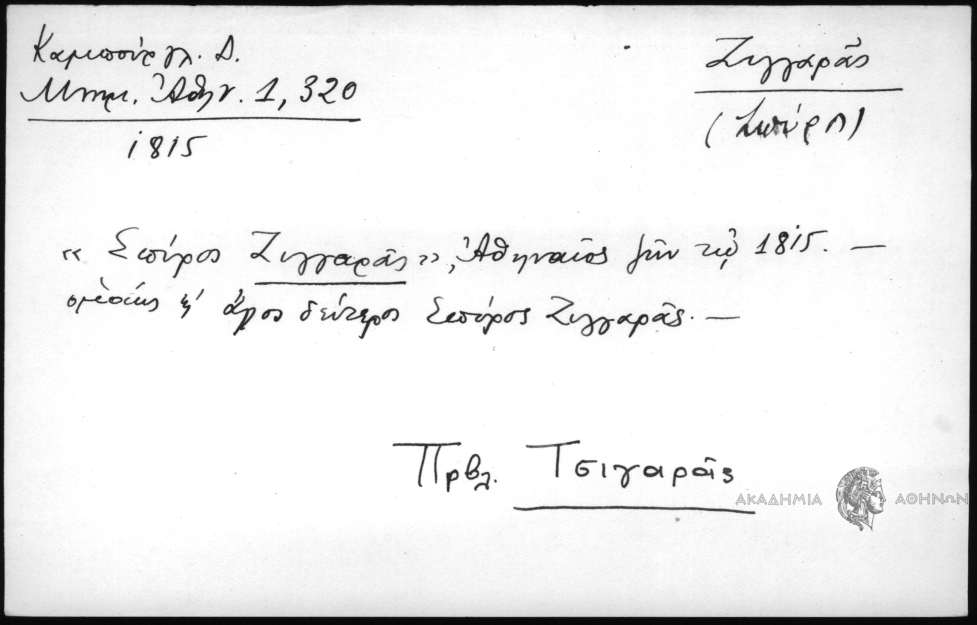 Καμπούργλ. Δ.
Μνημ. Ἀθην. 1, 320
1815
Ζιγγαρᾶς
(Σπύρος)
« Σπύρος Ζιγγαρᾶς », Ἀθηναῖος ζῶν τῷ 1815. —
ἄλλος δεύτερος Σπύρος Ζιγγαρᾶς. —
Πρβλ. Τσιγαρᾶς
ΑΚΑΔΗΜΙΑ ΑΘΗΝΩΝ